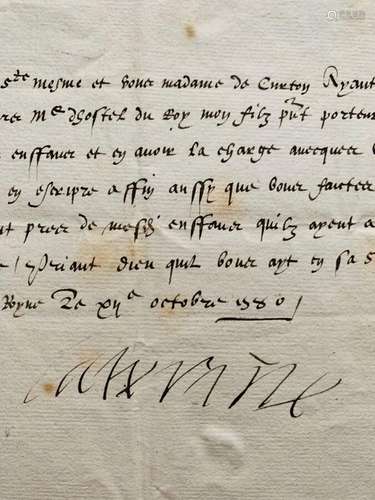 mesme et vous madame de Curton Ayant
Me dhostel du Roy mon filz pnt porteur
enffaver et en avoir la charge avecques
en escripre affin aussy que vous faictes
preer de mesd enffaver quilz ayent a
Priant dieu quil vous ayt en sa s
Royne Le xije octobre 1580
Caterine